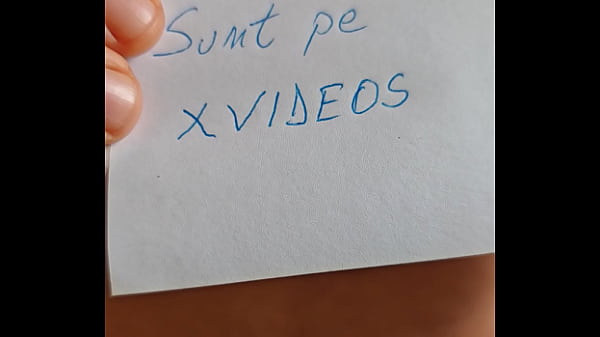 Sunt pe
XVIDEOS